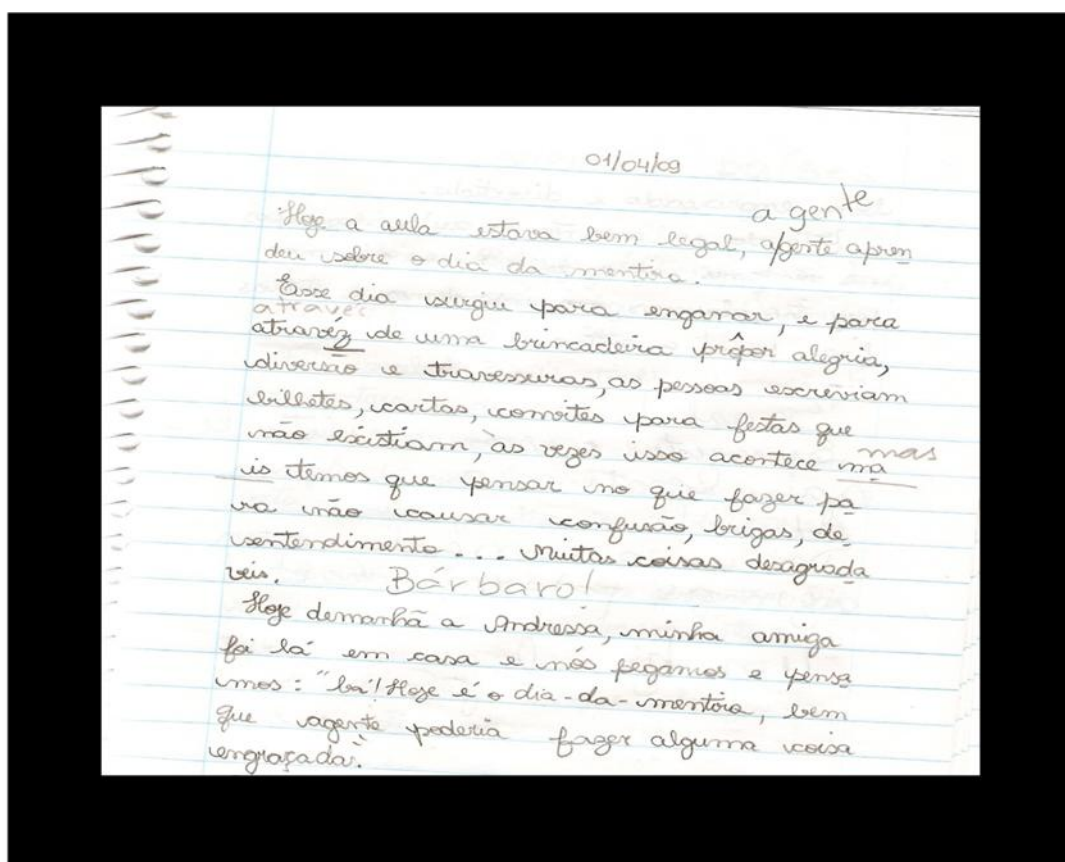 01/04/09
a gente
Hoje a aula estava bem legal, a/gente apren
deu sobre o dia da mentira.
Esse dia surgiu para enganar, e para
através
atravéz de uma brincadeira prôpor alegria,
diversão e travessuras, as pessoas escreviam
bilhetes, cartas, convites para festas que
não existiam, às vezes isso acontece ma
mas
is temos que pensar no que fazer pa
ra não causar confusão, brigas, de
sentendimento... Muitas coisas desagrada
veis. Bárbaro!
Hoje demanhã a Andressa, minha amiga
foi lá em casa e nós pegamos e pensa
mos: "bá! Hoje é o dia-da-mentira, bem
que agente poderia fazer alguma coisa
engraçada".